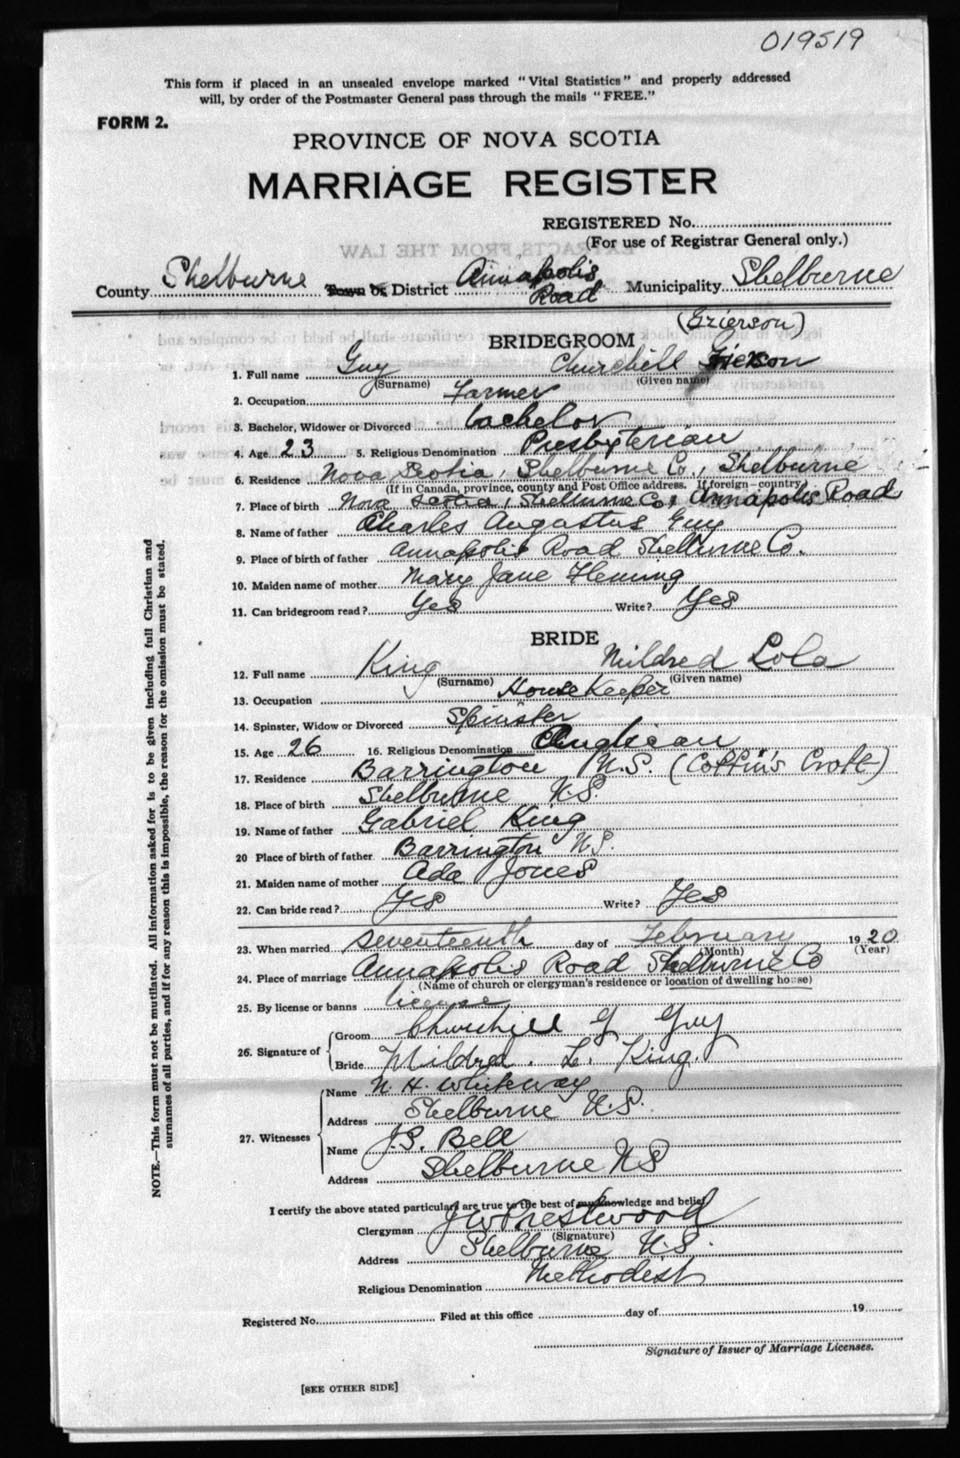 019519
This form if placed in an unsealed envelope marked "Vital Statistics" and properly addressed
will, by order of the Postmaster General pass through the mails "FREE."
FORM 2.
PROVINCE OF NOVA SCOTIA
MARRIAGE REGISTER
REGISTERED No.
(For use of Registrar General only.)
County Shelburne Town or District Annapolis Road Municipality Shelburne
(Grierson)
BRIDEGROOM
1. Full name Guy Churchill Grierson
(Surname) (Given name)
2. Occupation Farmer
3. Bachelor, Widower or Divorced bachelor
4. Age 23 5. Religious Denomination Presbyterian
6. Residence Nova Scotia, Shelburne Co., Shelburne
(If in Canada, province, county and Post Office address. If foreign—country)
7. Place of birth Nova Scotia, Shelburne Co, Annapolis Road
8. Name of father Charles Augastus Guy
9. Place of birth of father Annapolis Road Shelburne Co.
10. Maiden name of mother Mary Jane Fleming
11. Can bridegroom read? Yes Write? Yes
BRIDE
12. Full name King Mildred Lola
(Surname) (Given name)
13. Occupation House Keeper
14. Spinster, Widow or Divorced Spinster
15. Age 26 16. Religious Denomination Anglican
17. Residence Barrington N.S. (Coffin's Croft)
18. Place of birth Shelburne N.S.
19. Name of father Gabriel King
20 Place of birth of father Barrington N.S.
21. Maiden name of mother Ada Jones
22. Can bride read? Yes Write? Yes
23. When married seventeenth day of February 1920
(Month) (Year)
24. Place of marriage Annapolis Road Shelburne Co
(Name of church or clergyman's residence or location of dwelling house)
25. By license or banns license
26. Signature of Groom Churchill G Guy
Bride Mildred. L. King.
27. Witnesses Name N. H. Whiteway
Address Shelburne N.S.
Name J.S. Bell
Address Shelburne NS
I certify the above stated particulars are true to the best of my knowledge and belief.
Clergyman J W Prestwood
(Signature)
Address Shelburne N.S.
Religious Denomination Methodist
Registered No. Filed at this office day of 19
Signature of Issuer of Marriage Licenses.
[SEE OTHER SIDE]
NOTE.—This form must not be mutilated. All information asked for is to be given including full Christian and
surnames of all parties, and if for any reason this is impossible, the reason for the omission must be stated.